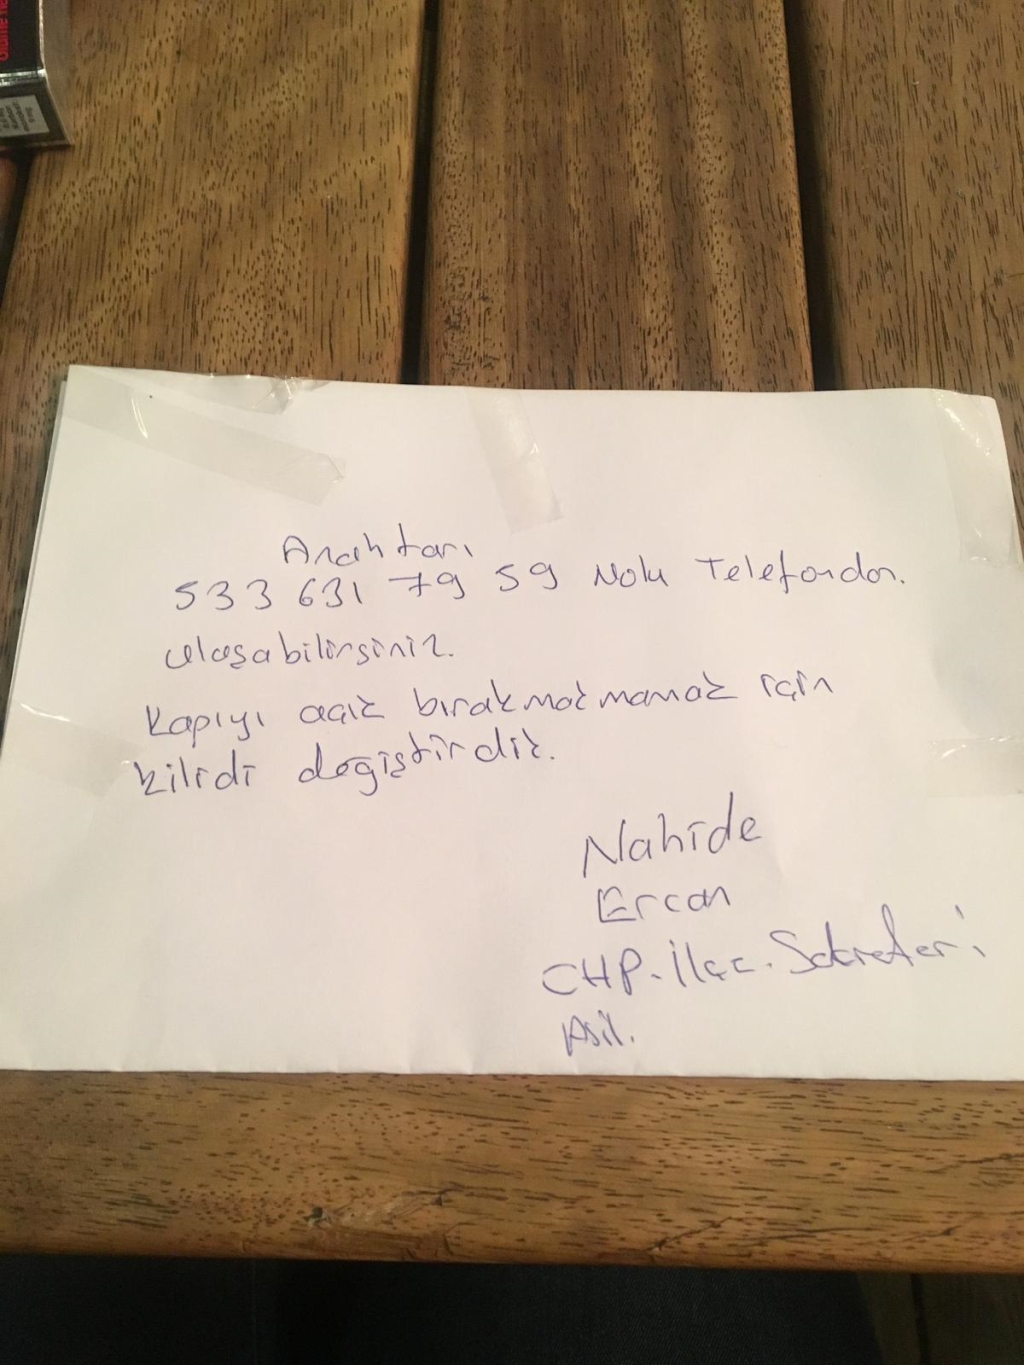 Anahtarı
533 631 79 59 Nolu Telefondan.
ulaşabilirsiniz.
Kapıyı açık bırakmakmamak için
kilidi değiştirdik.
Nahide
Ercan
CHP. İlçe. Sekreter'i
Asil.